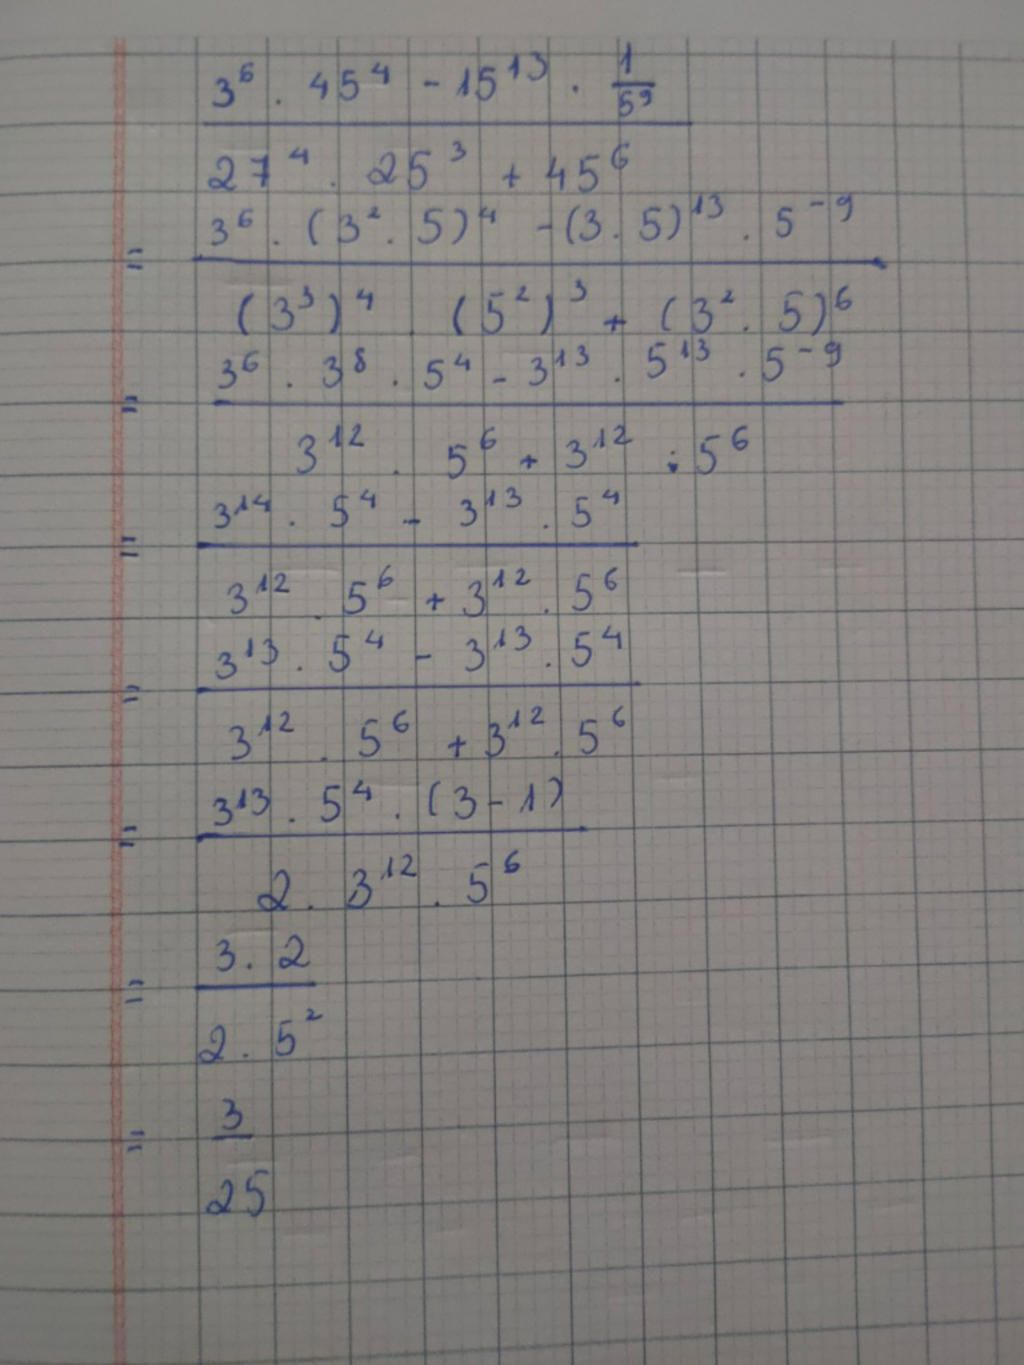 3⁶ . 45⁴ - 15¹³ . 1/5⁹
27⁴ . 25³ + 45⁶
= 3⁶ . (3² . 5)⁴ - (3 . 5)¹³ . 5⁻⁹
(3³)⁴ . (5²)³ + (3² . 5)⁶
= 3⁶ . 3⁸ . 5⁴ - 3¹³ . 5¹³ . 5⁻⁹
3¹² . 5⁶ + 3¹² . 5⁶
= 3¹⁴ . 5⁴ - 3¹³ . 5⁴
3¹² . 5⁶ + 3¹² . 5⁶
= 3¹³ . 5⁴ - 3¹³ . 5⁴
3¹² . 5⁶ + 3¹² . 5⁶
= 3¹³ . 5⁴ . (3 - 1)
2 . 3¹² . 5⁶
= 3 . 2
2 . 5²
= 3
25